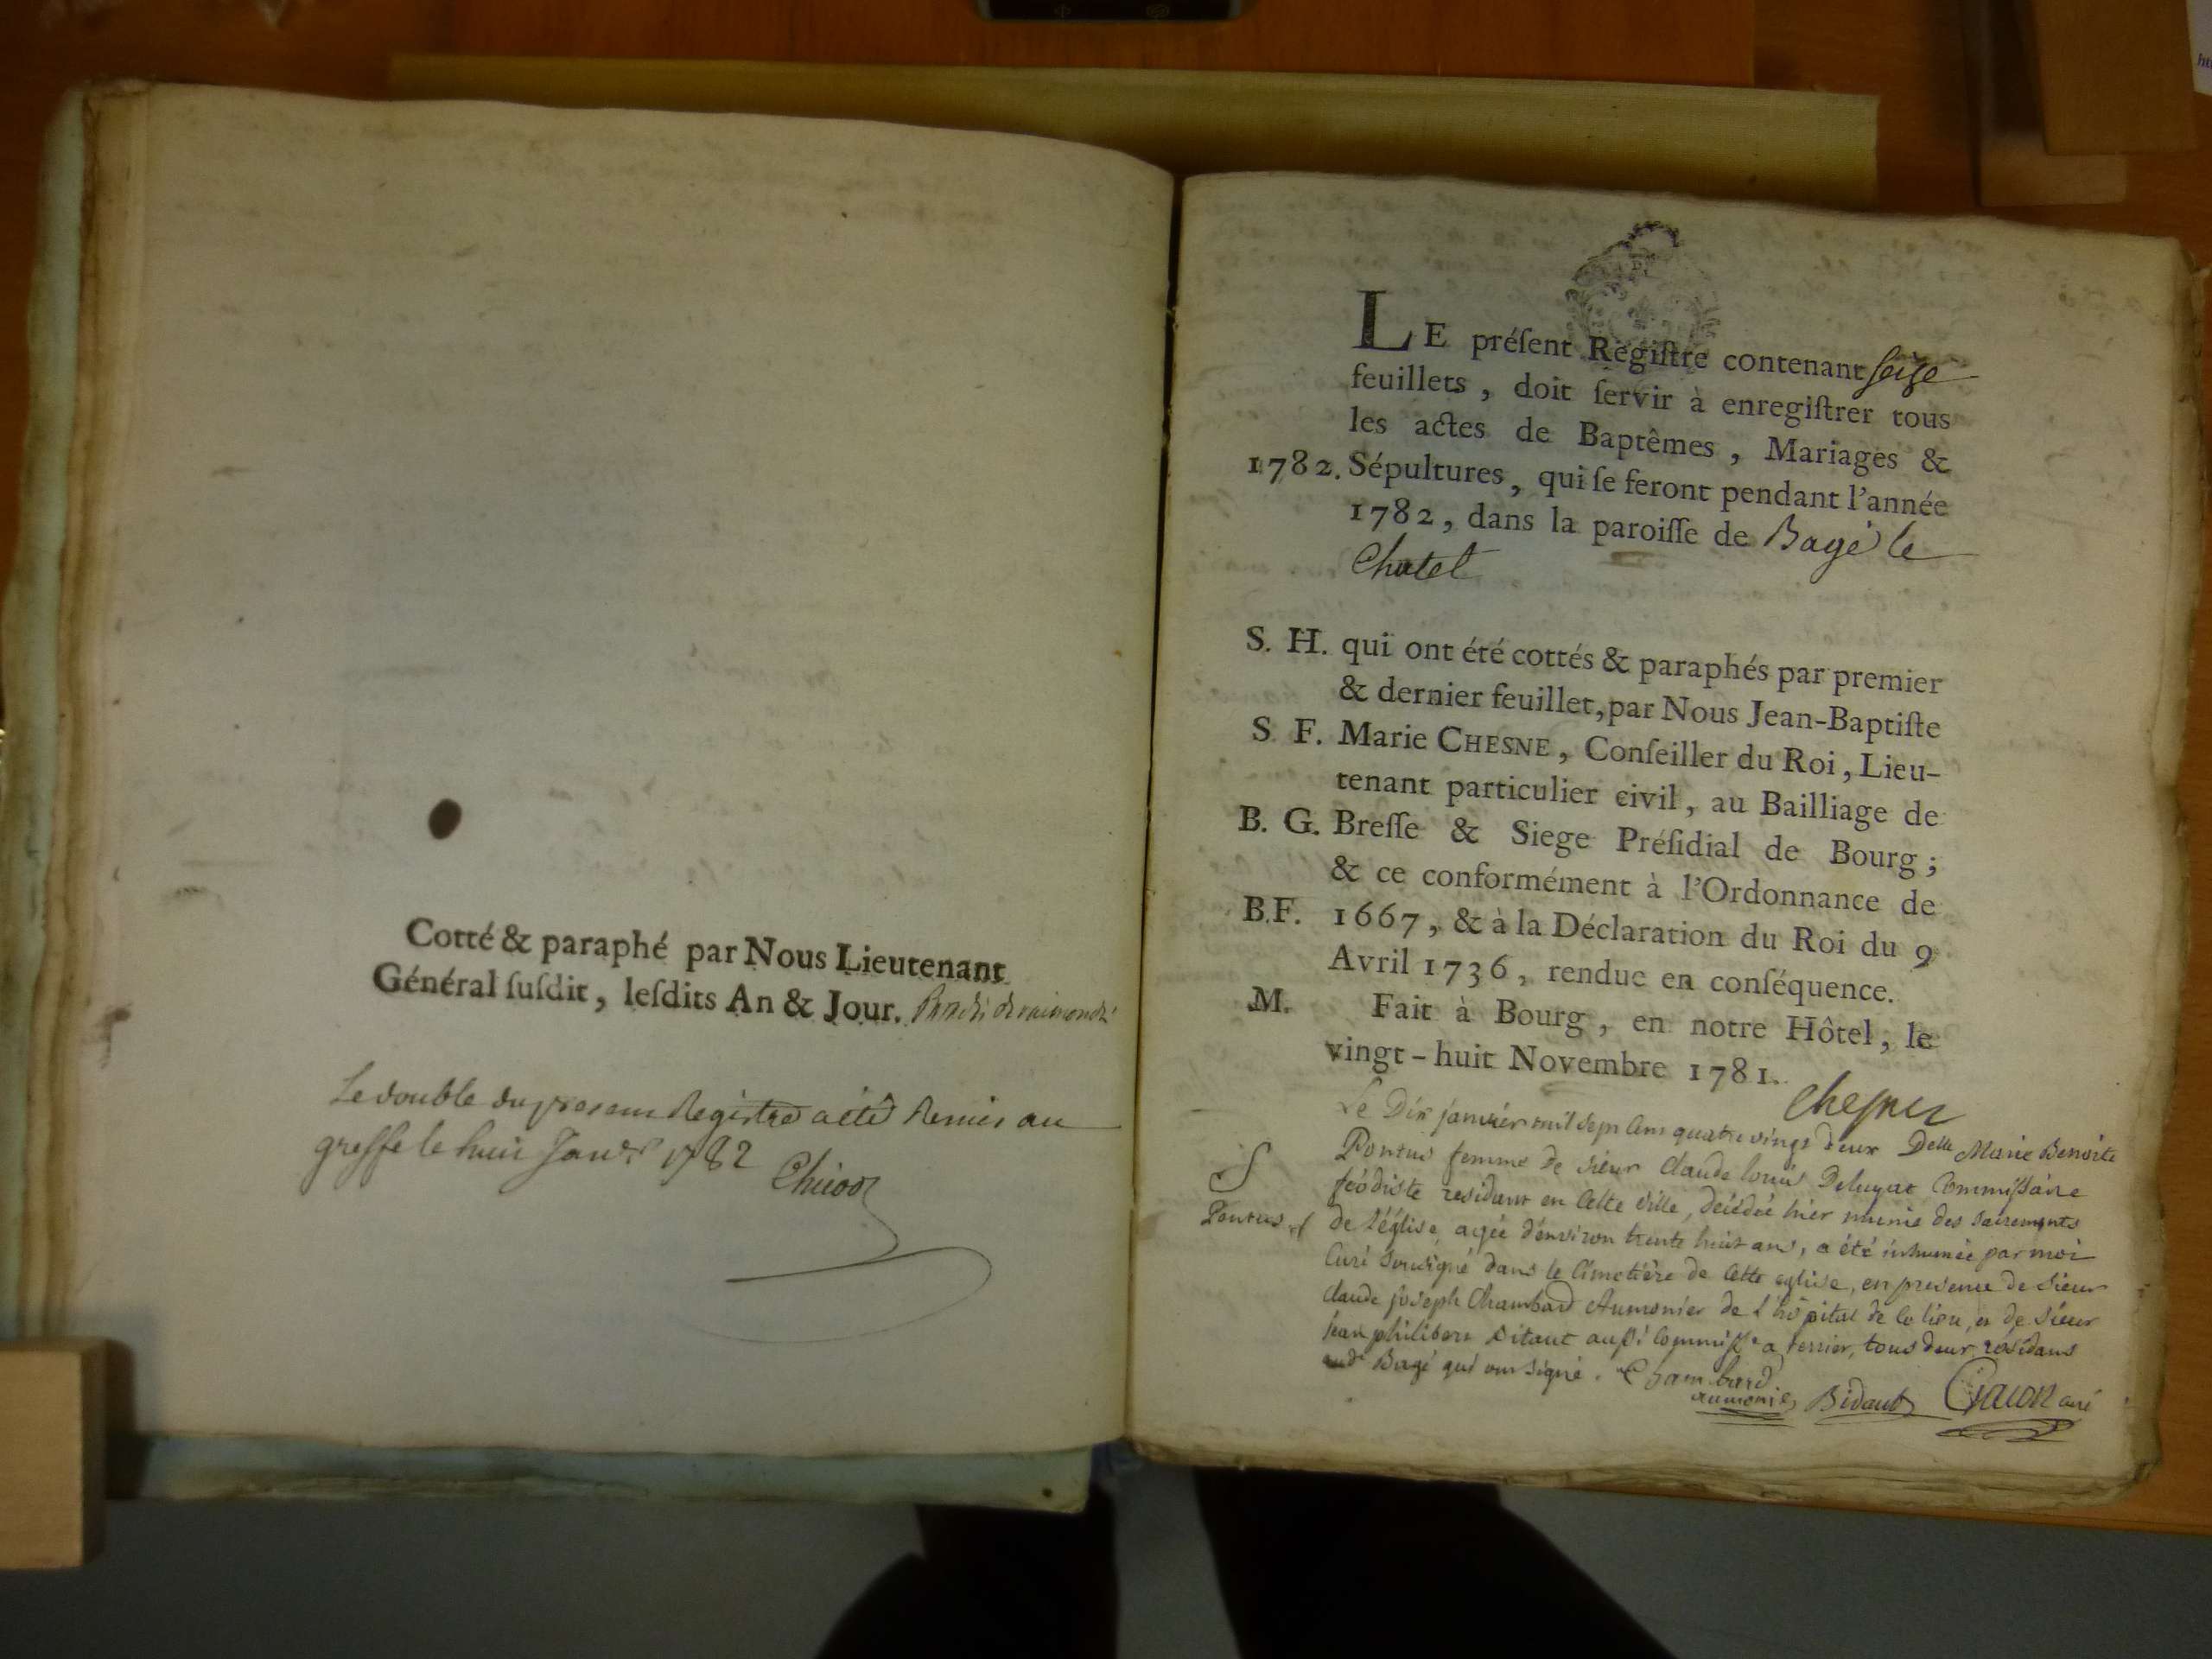 Cotté & paraphé par Nous Lieutenant
Général ſuſdit, leſdits An & Jour.
Le double du present Registre a eté Remis au
greffe le huit Janv.r 1782
LE préſent Regiſtre contenant seize
feuillets, doit ſervir à enregiſtrer tous
les actes de Baptêmes, Mariages &
1782. Sépultures, qui ſe feront pendant l'année
1782, dans la paroiſſe de Bagé le
Chatel
S. H. qui ont été cottés & paraphés par premier
& dernier feuillet, par Nous Jean-Baptiſte
S. F. Marie CHESNE, Conſeiller du Roi, Lieu-
tenant particulier civil, au Bailliage de
B. G. Breſſe & Siege Préſidial de Bourg;
& ce conformément à l'Ordonnance de
B.F. 1667, & à la Déclaration du Roi du 9
Avril 1736, rendue en conſéquence.
M. Fait à Bourg, en notre Hôtel, le
vingt-huit Novembre 1781.
Le Dix janvier mil sept cent quatre vingt deux Delle Marie Benoite
S Pontus femme de sieur Claude louis Commissaire
féodiste residant en cette ville, décédée hier munie des sacrements
Pontus de l'église, agée d'environ trente huit ans, a été inhumée par moi
Curé soussigné dans le Cimetière de cette eglise, en presence de sieur
claude joseph Chambard Aumonier de l'hôpital de ce lieu, et de sieur
jean philibert aussi a terrier, tous deux résidans
aud. Bagé qui ont signé. Chambard
aumonier Bidaut curé